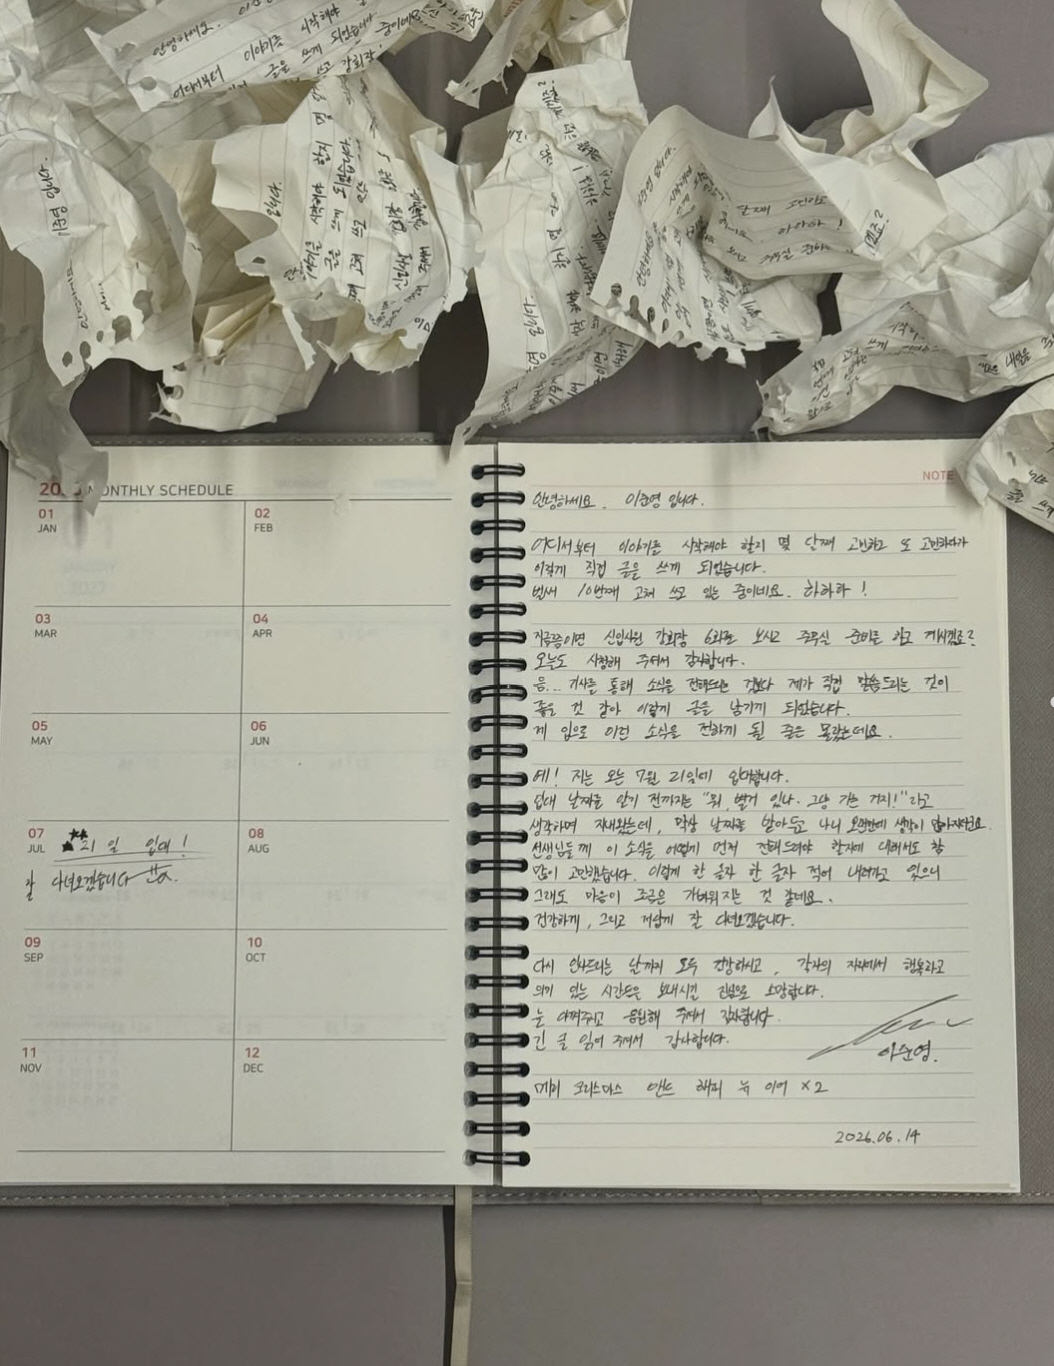 안녕하세요.
이야기를 시작해야
글을 쓰게 되었습니다
20 MONTHLY SCHEDULE
01
JAN
02
FEB
03
MAR
04
APR
05
MAY
06
JUN
07
JUL
21일 입대!
잘 다녀오겠습니다
08
AUG
09
SEP
10
OCT
11
NOV
12
DEC
NOTE
안녕하세요. 이준영입니다.
어디서부터 이야기를 시작해야 할지 몇 달째 고민하고 또 고민하다가
이렇게 직접 글을 쓰게 되었습니다.
벌써 10번째 고쳐 쓰고 있는 중이네요. 하하하!
지금쯤이면 신입사원 강회장 6회를 보시고 주무실 준비를 하고 계시겠죠?
오늘도 시청해 주셔서 감사합니다.
음... 기사를 통해 소식을 전해드리는 것보다 제가 직접 말씀드리는 것이
좋을 것 같아 이렇게 글을 남기게 되었습니다.
제 입으로 이런 소식을 전하게 될 줄은 몰랐는데요.
예! 저는 오는 7월 21일에 입대합니다.
입대 날짜를 알기 전까지는 "뭐, 별거 있나. 그냥 가는 거지!"라고
생각하며 지내왔는데, 막상 날짜를 받아두고 나니 오만한데 생각이 많아지더군요.
선생님들께 이 소식을 어떻게 먼저 전해드려야 할지에 대해서도 참
많이 고민했습니다. 이렇게 한 글자 한 글자 적어 내려가고 있으니
그래도 마음이 조금은 가벼워지는 것 같네요.
건강하게, 그리고 저답게 잘 다녀오겠습니다.
다시 인사드리는 날까지 모두 건강하시고, 각자의 자리에서 행복하고
의미 있는 시간들을 보내시길 진심으로 소망합니다.
늘 아껴주시고 응원해 주셔서 감사합니다.
긴 글 읽어 주셔서 감사합니다.
이준영.
메리 크리스마스 앤드 해피 뉴 이어 X2
2026.06.14